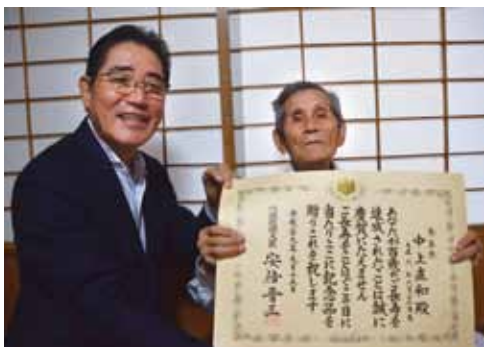 中上直和殿
あなたが百歳のご長寿を
達成されたことは誠に
慶賀にたえません
ご長寿をことほぐ本日に
当たりここに記念品を
贈りこれを祝します
内閣総理大臣 安倍晋三